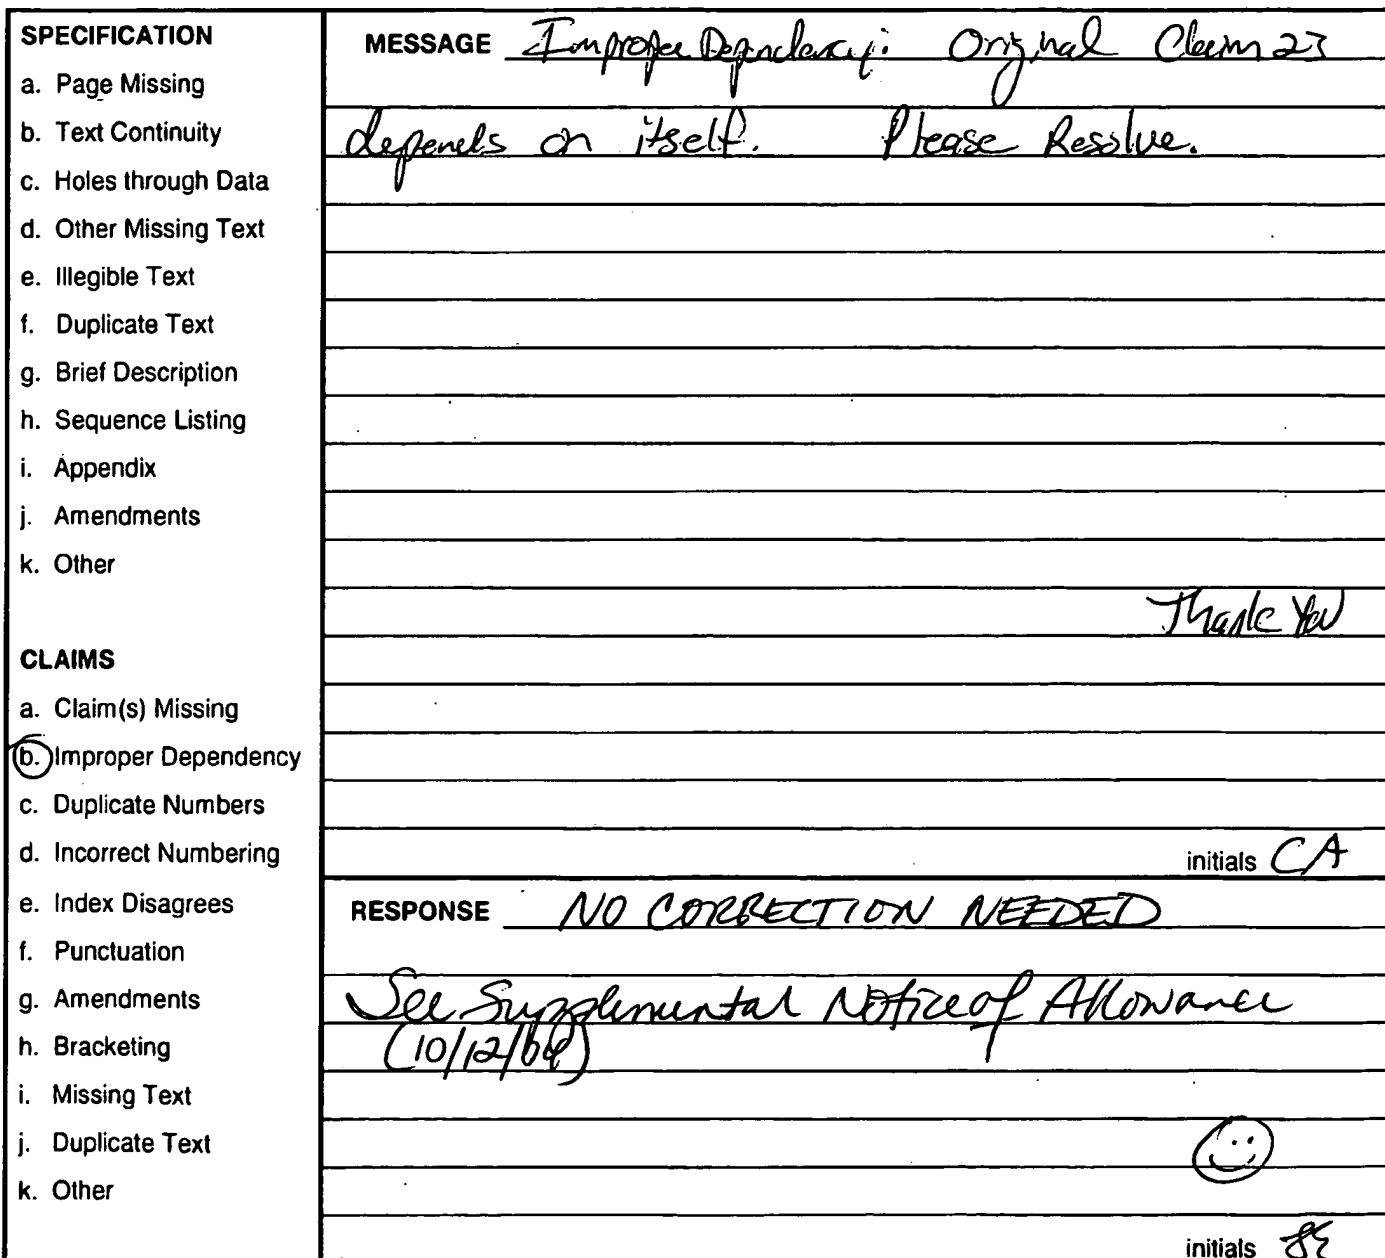 SPECIFICATION
a. Page Missing
b. Text Continuity
c. Holes through Data
d. Other Missing Text
e. Illegible Text
f. Duplicate Text
g. Brief Description
h. Sequence Listing
i. Appendix
j. Amendments
k. Other
CLAIMS
a. Claim(s) Missing
b. Improper Dependency
c. Duplicate Numbers
d. Incorrect Numbering
e. Index Disagrees
f. Punctuation
g. Amendments
h. Bracketing
i. Missing Text
j. Duplicate Text
k. Other
MESSAGE Improper Dependency: Original Claim 23
depends on itself. Please Resolve.
Thank You
initials CA
RESPONSE NO CORRECTION NEEDED
See Supplemental Notice of Allowance
initials